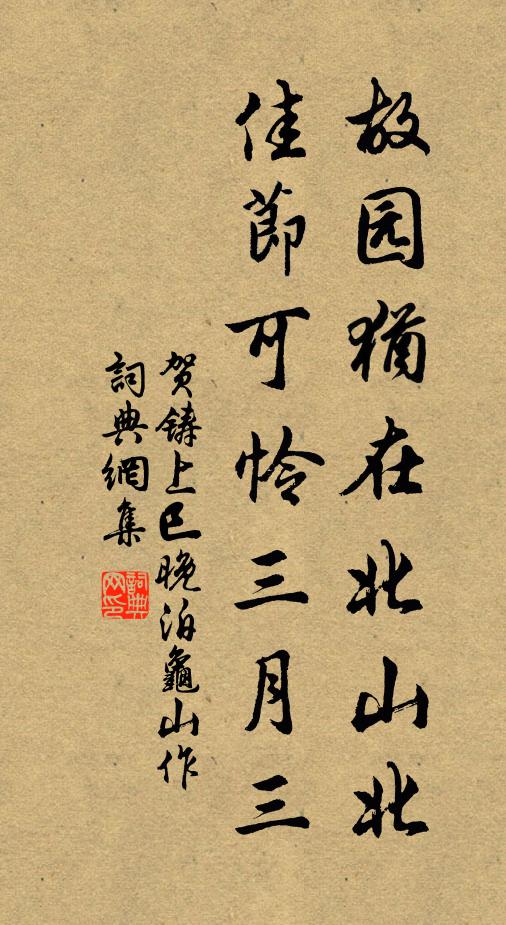 故园猶在北山北
佳節可怜三月三
贺鑄上巳晚泊龜山作
詞典網集
詞典网印